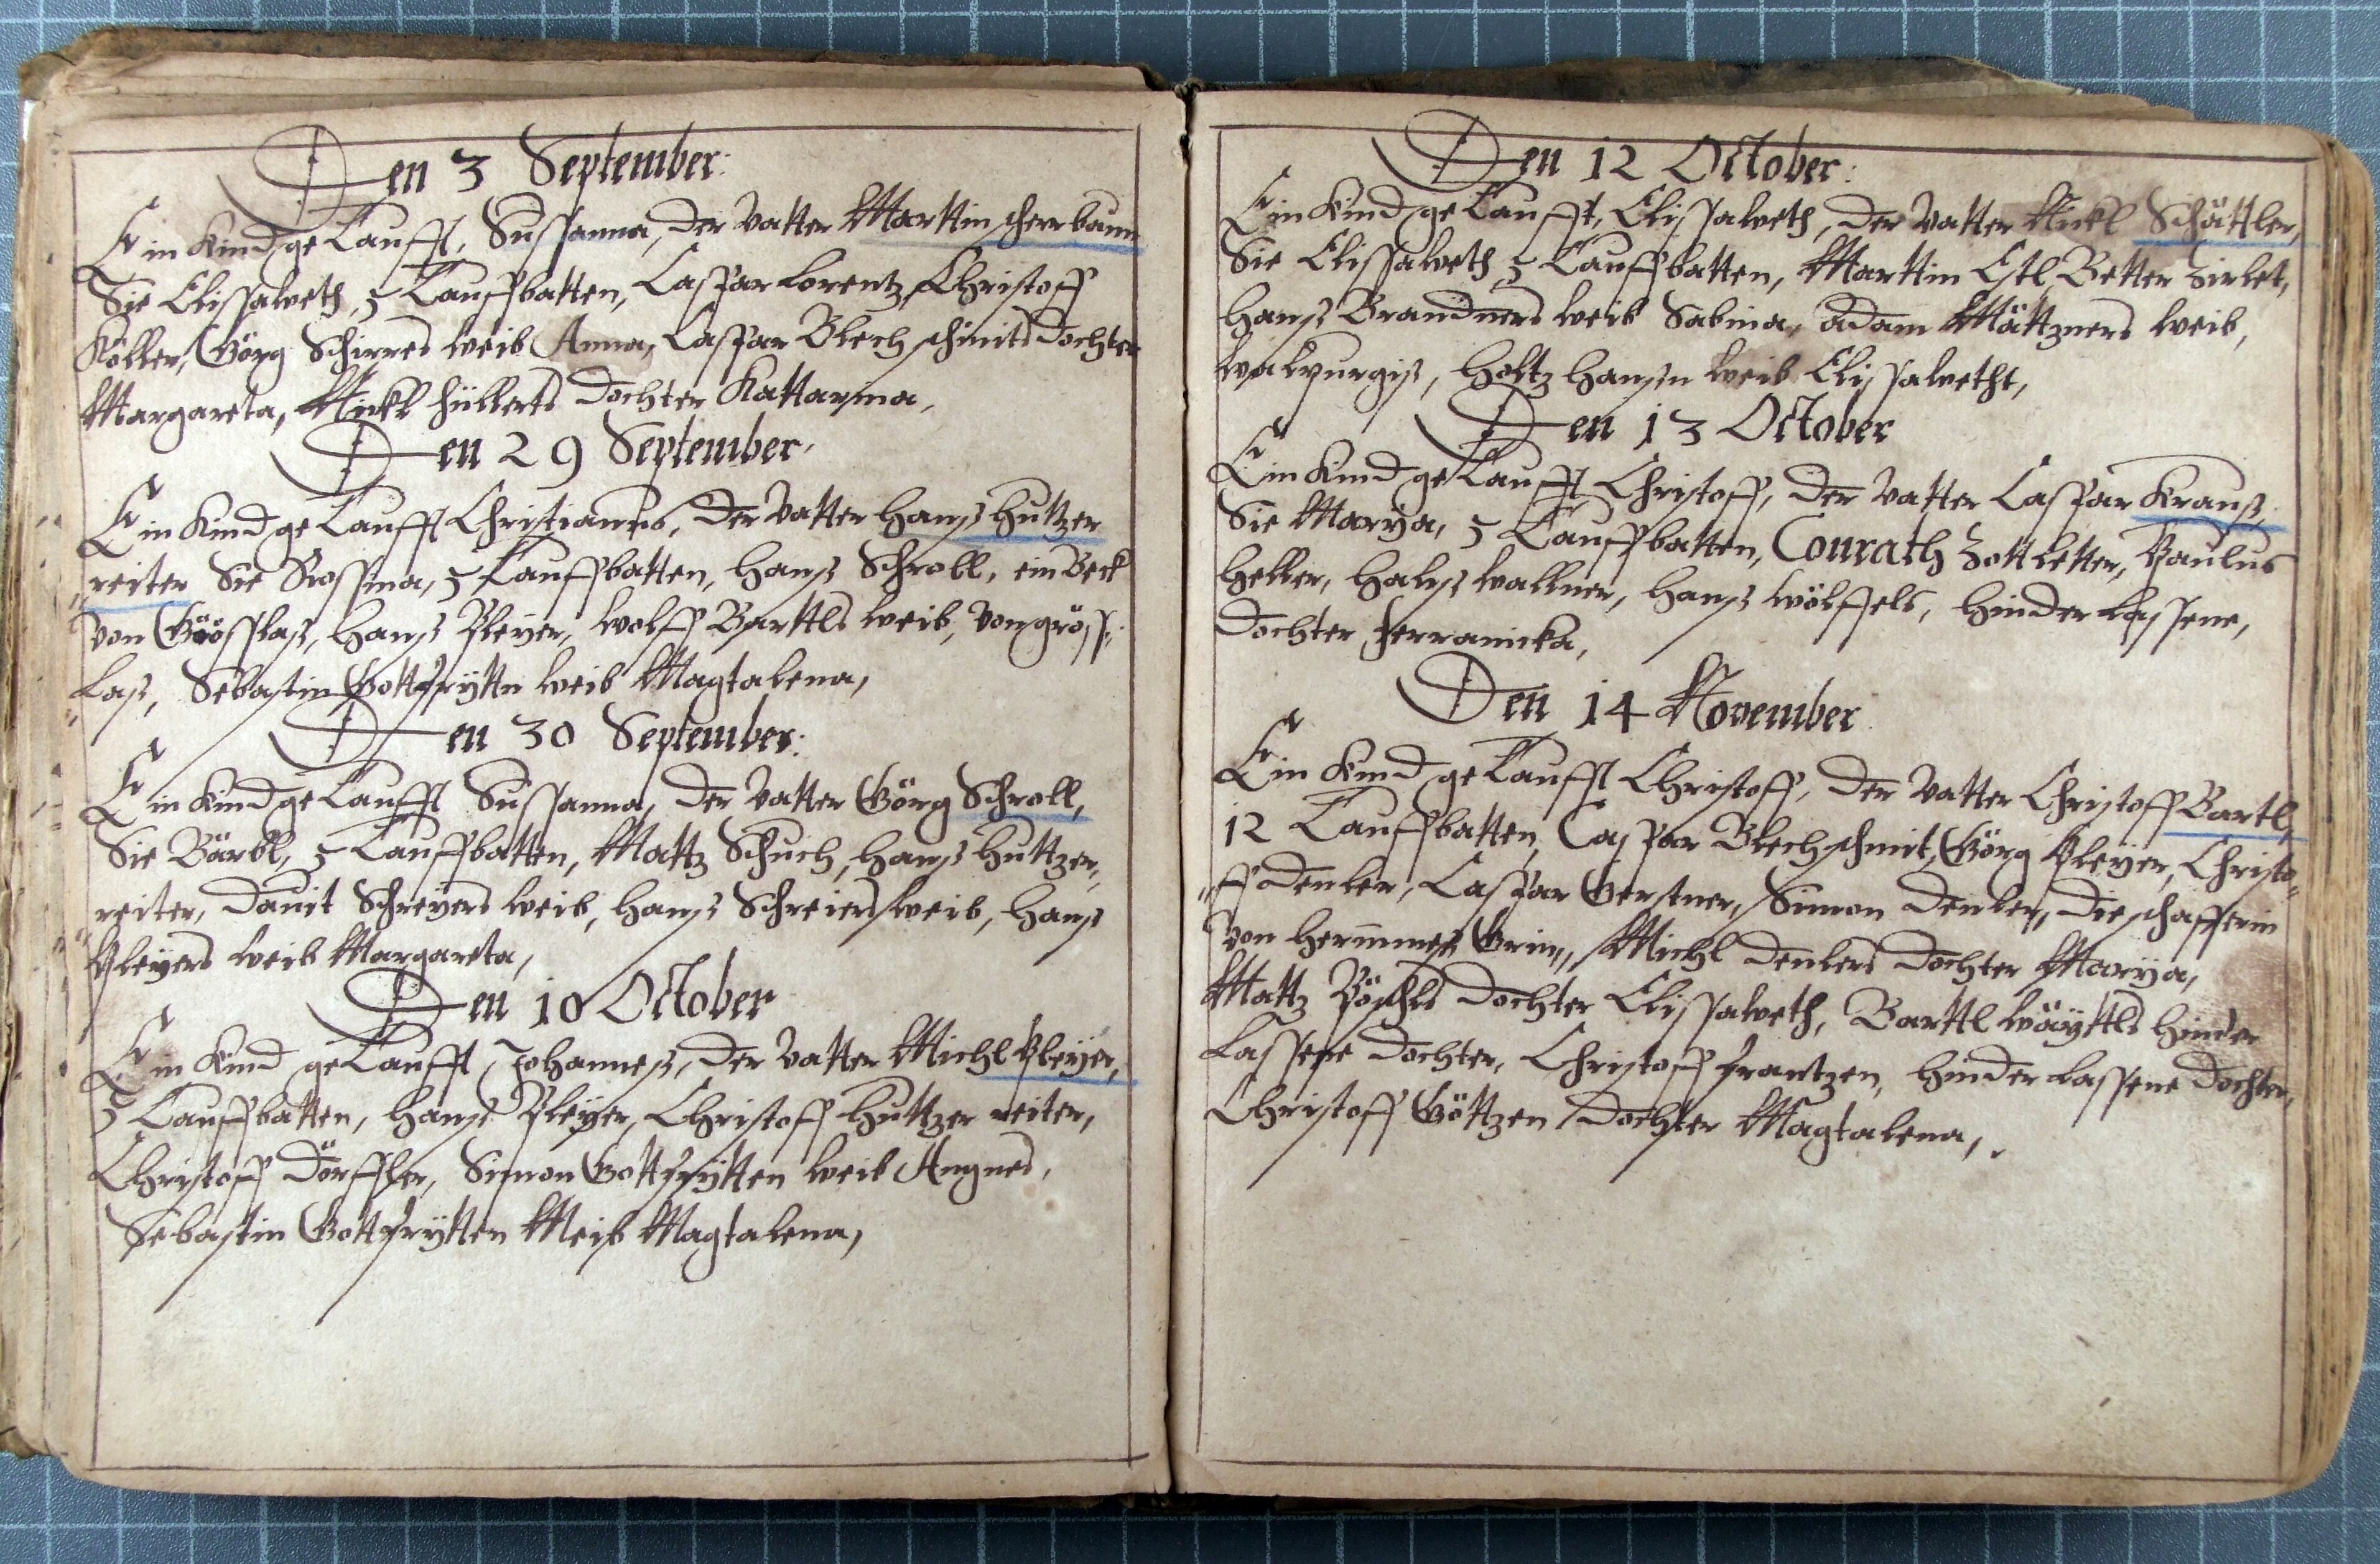 Den 3 September:
Ein Kind getaufft, Sussanna, Der Vatter Marttin scherbaum
Sie Elissaweth, 5 Tauffbatten, Caspar Lorentz, Christoff
Köller, Görg Schirres weib Anna, Caspar Blechschmits Dochter
Margareta, Nickl hüllerts Dochter Kattarina,
Den 29 September.
Ein Kind getaufft Christianus, Der Vatter Hanß Hutzer
reiter Sie Rossina, 5 Tauffbatten, Hanß Schroll, ein Beck
von Gössslaß, Hanß Pleyer, Wolff Barttls weib, von gröss„
laß, Sebastin Gottfrytten weib Magtalena,
Den 30 September:
Ein Kind getaufft Sussanna, Der Vatter Görg Schroll,
Sie Bärbl, 5 Tauffbatten, Mattz Schuch, Hanß Huttzer„
reiter, Dauit Schreyers weib, Hanß Schreiers weib, Hanß
Pleyers weib Margareta,
Den 10 October
Ein Kind getaufft Johanneß, Der Vatter Michl Pleyer,
5 Tauffbatten, Hanß Pleyer, Christoff Huttzer reiter,
Christoff Dörffler, Simon Gottfrytten weib Angnes,
Sebastin Gottfrytten Weib Magtalena,
Den 12 October:
Ein Kind getaufft, Elissaweth, Der Vatter Nickl Schättler,
Sie Elissaweth 5 Tauffbatten, Marttin Ertl, Better Zirket,
Hanß Brandners weib Sabina, Adam Mättzners weib,
Walpurgiß, Holtz Hanßn weib Elissawetht,
Den 13 October
Ein Kind getaufft Christoff, Der Vatter Caspar Krauß,
Sie Marya, 5 Tauffbatten, Conrath Zottletter, Paulus
Heller, Hanß Wallner, Hanß Wölffels, Hinderlassene,
Dochter Ferranicka,
Den 14 November
Ein Kind getaufft Christoff, Der Vatter Christoff Bartl,
12 Tauffbatten, Caspar Blechschmit, Görg Pleyer, Christo„
ff Denler, Caspar Gerstner, Simon Denler, Die schafferin
von Hermmeß Grin, Michl Denlers Dochter Marya,
Mattz Pöschls Dochter Elissaweth, Barttl Wäyttls Hinder
Lassene Dochter, Christoff Frantzen, Hinderlassene Dochter,
Christoff Göttzen Dochter Magtalena,